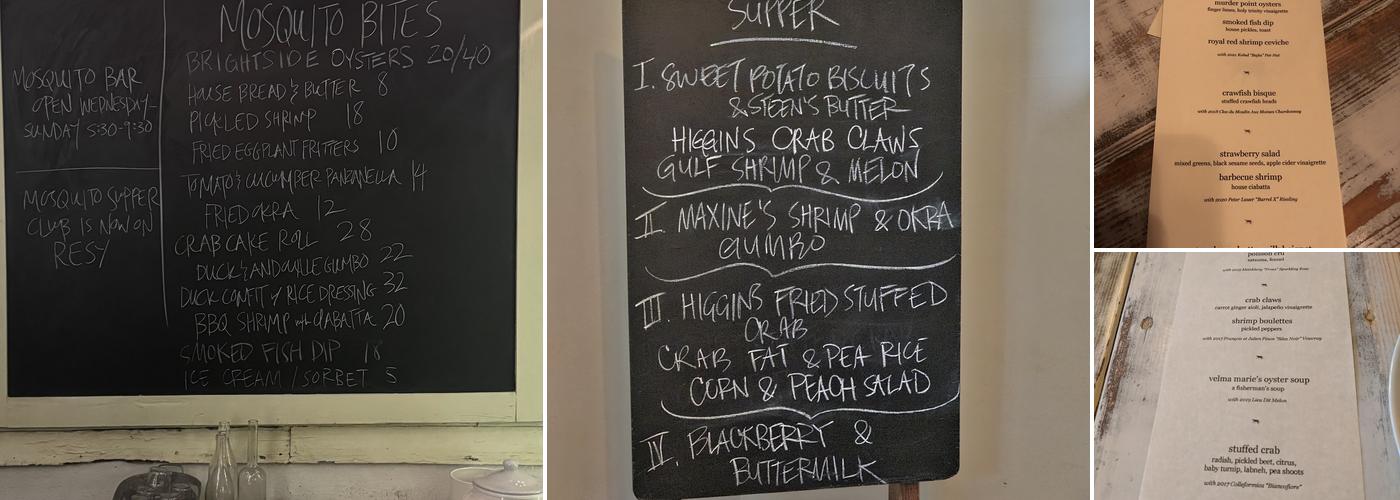 MOSQUITO BAR
OPEN WEDNESDAY-
SUNDAY 5:30-9:30
MOSQUITO SUPPER
CLUB IS NOW ON
RESY
MOSQUITO BITES
BRIGHTSIDE OYSTERS 20/40
HOUSE BREAD & BUTTER 8
PICKLED SHRIMP 18
FRIED EGGPLANT FRITTERS 10
TOMATO & CUCUMBER PANZANELLA 14
FRIED OKRA 12
CRAB CAKE ROLL 28
DUCK & ANDOUILLE GUMBO 22
DUCK CONFIT w/ RICE DRESSING 32
BBQ SHRIMP with CIABATTA 20
SMOKED FISH DIP 18
ICE CREAM / SORBET 5
SUPPER
I. SWEET POTATO BISCUITS
& STEEN'S BUTTER
HIGGINS CRAB CLAWS
GULF SHRIMP & MELON
II. MAXINE'S SHRIMP & OKRA
GUMBO
III. HIGGINS FRIED STUFFED
CRAB
CRAB FAT & PEA RICE
CORN & PEACH SALAD
IV. BLACKBERRY &
BUTTERMILK
murder point oysters
finger limes, holy trinity vinaigrette
smoked fish dip
house pickles, toast
royal red shrimp ceviche
with 2021 Kobal "Bajta" Pet Nat
crawfish bisque
stuffed crawfish heads
with 2018 Clos du Moulin Aux Moines Chardonnay
strawberry salad
mixed greens, black sesame seeds, apple cider vinaigrette
barbecue shrimp
house ciabatta
with 2020 Peter Lauer "Barrel X" Riesling
poisson cru
satsuma, fennel
crab claws
carrot ginger aioli, jalapeño vinaigrette
shrimp boulettes
pickled peppers
with 2017 François et Julien Pinon "Silex Noir" Vouvray
velma marie's oyster soup
a fisherman's soup
with 2019 Lieu Dit Melon
stuffed crab
radish, pickled beet, citrus,
baby turnip, labneh, pea shoots
with 2017 Colleformica "Biancofiore"